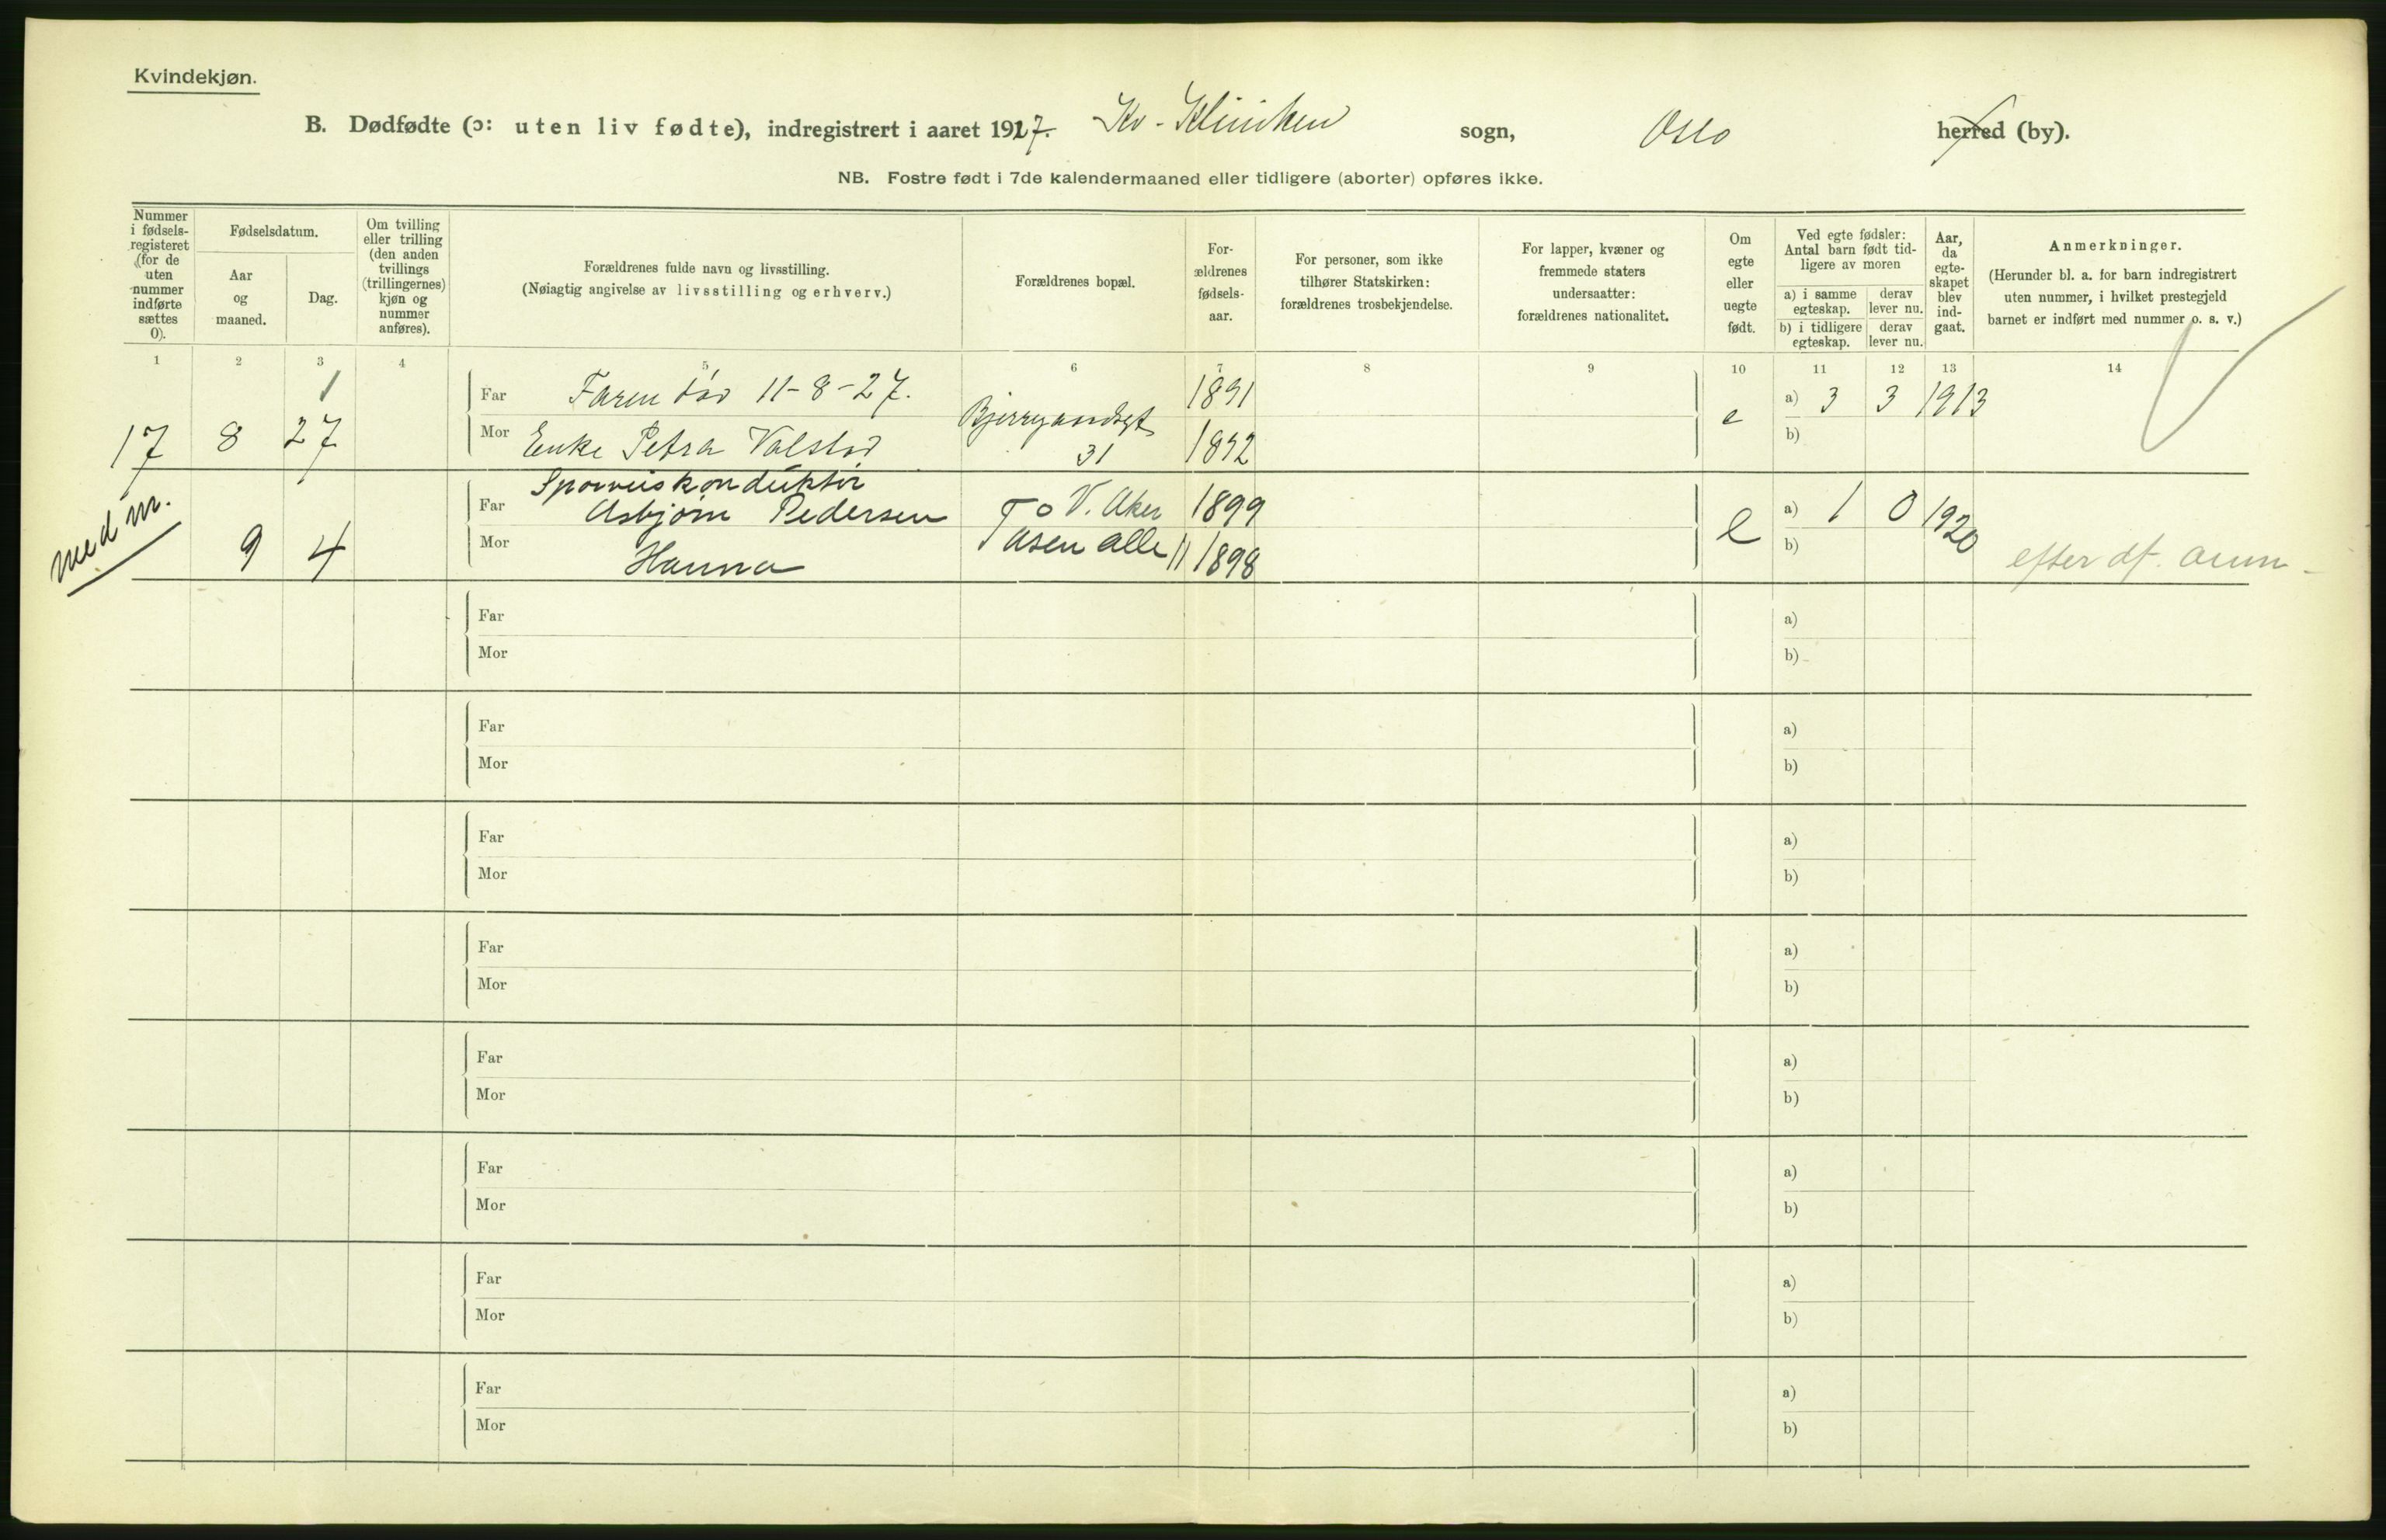 Kvindekjøn.
B. Dødfødte (ɔ: uten liv fødte), indregistrert i aaret 1927. Kv-Kliniken sogn, Oslo herred (by).
NB. Fostre født i 7de kalendermaaned eller tidligere (aborter) opføres ikke.
Nummer
i fødsels-
registeret
(for de
uten
nummer
indførte
sættes
0).
Fødselsdatum.
Aar
og
maaned.
Dag.
Om tvilling
eller trilling
(den anden
tvillings
(trillingernes)
kjøn og
nummer
anføres).
Forældrenes fulde navn og livsstilling.
(Nøiagtig angivelse av livsstilling og erhverv.)
Forældrenes bopæl.
For-
ældrenes
fødsels-
aar.
For personer, som ikke
tilhører Statskirken:
forældrenes trosbekjendelse.
For lapper, kvæner og
fremmede staters
undersaatter:
forældrenes nationalitet.
Om
egte
eller
uegte
født.
Ved egte fødsler:
Antal barn født tid-
ligere av moren
a) i samme
egteskap.
derav
lever nu.
b) i tidligere
egteskap.
derav
lever nu.
Aar,
da
egte-
skapet
blev
ind-
gaat.
Anmerkninger.
(Herunder bl. a. for barn indregistrert
uten nummer, i hvilket prestegjeld
barnet er indført med nummer o. s. v.)
1 2 3 4 5 6 7 8 9 10 11 12 13 14
1
Far Faren død 11-8-27. 1891 a) 3 3 1913
17 8 27 Mor Enke Petra Valstad 31 1892 e b)
Sporveiskonduktør
med m. Far Asbjørn Pedersen V. Aker 1899 a) 1 0 1920
9 4 Mor Hanna Tåsen alle 11 1898 e b)
efter df. anm.
Far a)
Mor b)
Far a)
Mor b)
Far a)
Mor b)
Far a)
Mor b)
Far a)
Mor b)
Far a)
Mor b)
Far a)
Mor b)
Far a)
Mor b)